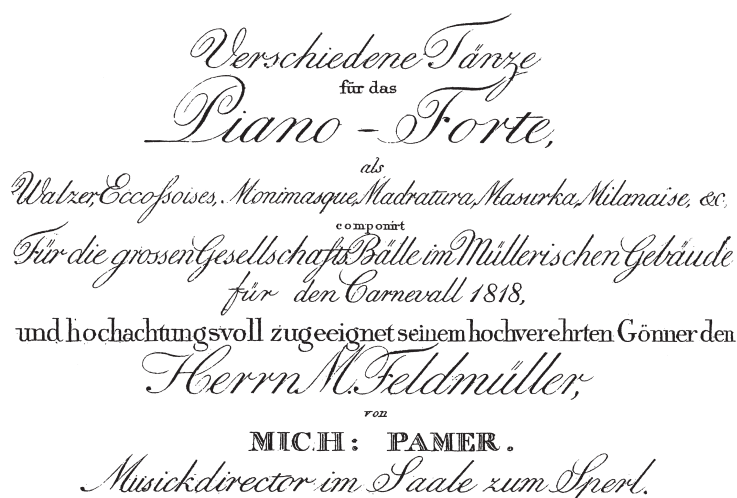 Verschiedene Tänze
für das
Piano - Forte,
als
Walzer, Eccossoises, Monimasque, Madratura, Masurka, Milanaise, &c,
componirt
Für die grossen Gesellschafts Bälle im Müllerischen Gebäude
für den Carnevall 1818,
und hochachtungsvoll zugeeignet seinem hochverehrten Gönner den
Herrn M. Feldmüller,
von
MICH: PAMER.
Musickdirector im Saale zum Sperl.